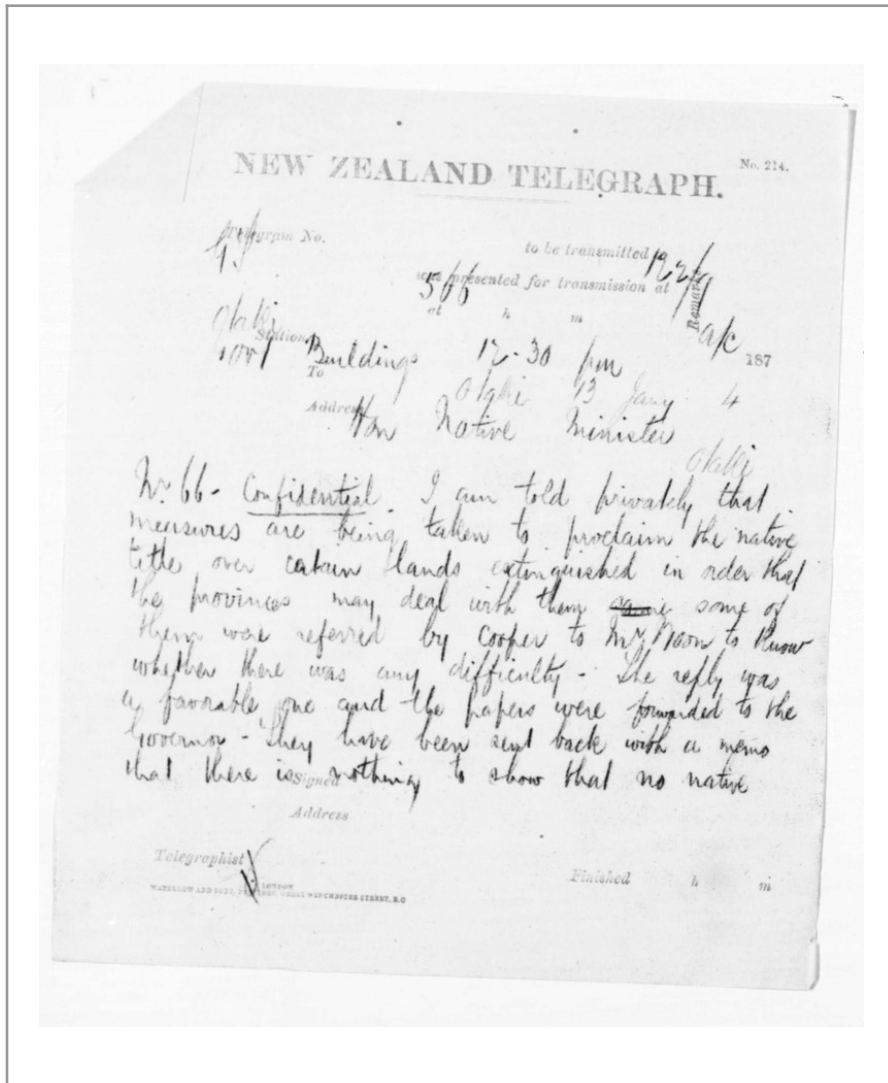 NEW ZEALAND TELEGRAPH.
No. 214.
Telegram No.
to be transmitted to
was presented for transmission at
Remarks
at h m
Otaki
Station
a/c
187
Govt Buildings 12-30 pm
To
Otaki 13 Jany 4
Address
Hon Native Minister
Otaki
No 66 - Confidential. I am told privately that
measures are being taken to proclaim the native
title over certain lands extinguished in order that
the provinces may deal with them some of
them were referred by Cooper to to know
whether there was any difficulty - The reply was
a favorable one and the papers were forwarded to the
Governor - They have been sent back with a memo
that there is nothing to show that no native
Signed
Address
Telegraphist
Finished h m
WATERLOW AND SONS, LONDON
GREAT WINCHESTER STREET, E.C